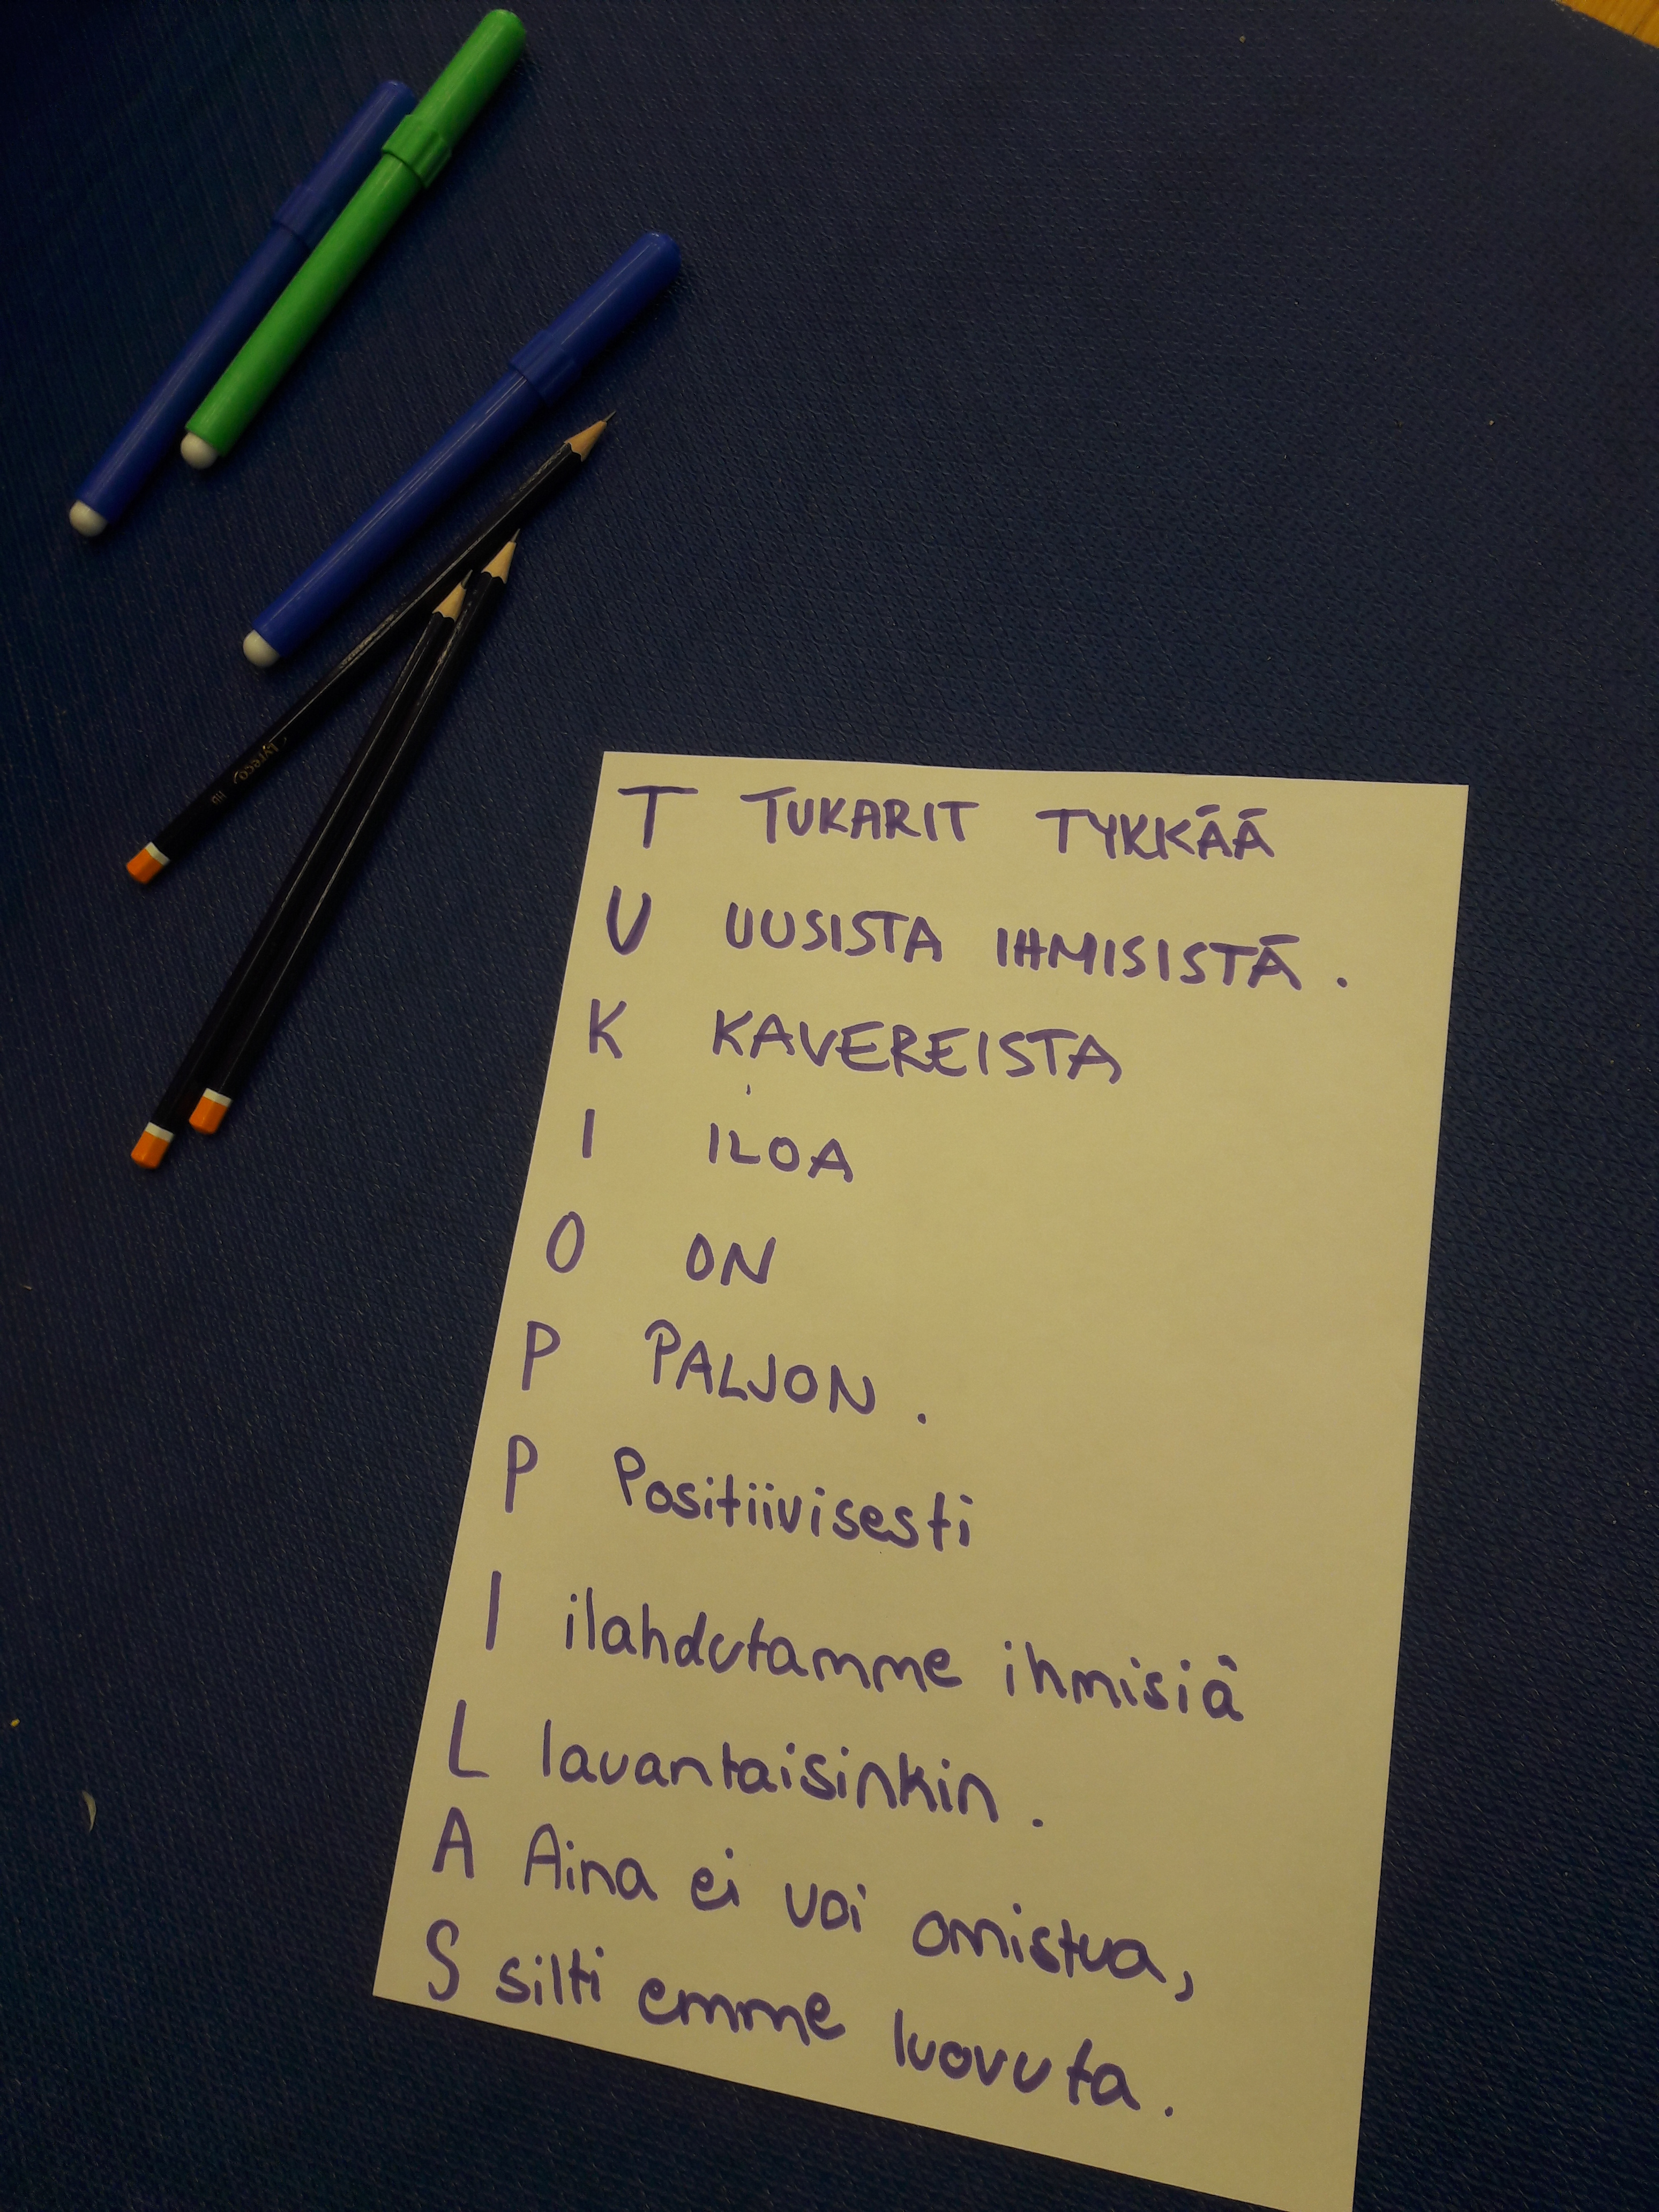 Lyreco HB
T TUKARIT TYKKÄÄ
U UUSISTA IHMISISTÄ.
K KAVEREISTA
I ILOA
O ON
P PALJON.
P Positiivisesti
I ilahdutamme ihmisiä
L lauantaisinkin.
A Aina ei voi omistua,
S silti emme luovuta.